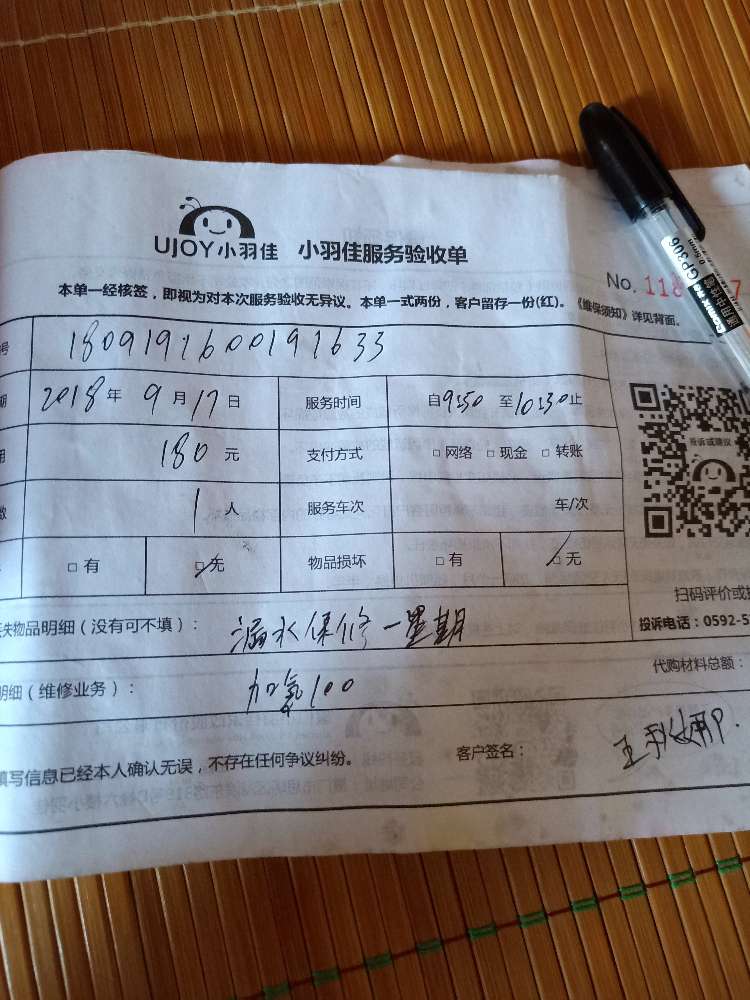 UJOY小羽佳 小羽佳服务验收单
No. 118 7
本单一经核签，即视为对本次服务验收无异议。本单一式两份，客户留存一份(红)。《维保须知》详见背面。
号 1809191600191633
期 2018年 9月17日 服务时间 自9:50 至10:30止
用 180 元 支付方式 □ 网络 □ 现金 □ 转账
数 1 人 服务车次 车/次
□ 有 □ 无 物品损坏 □ 有 □ 无
投诉或建议
扫码评价或
投诉电话：0592-5
失物品明细（没有可不填）： 漏水保修一星期
代购材料总额：
明细（维修业务）： 加氟100
填写信息已经本人确认无误，不存在任何争议纠纷。 客户签名：
GP306
0.5mm
通用中性笔